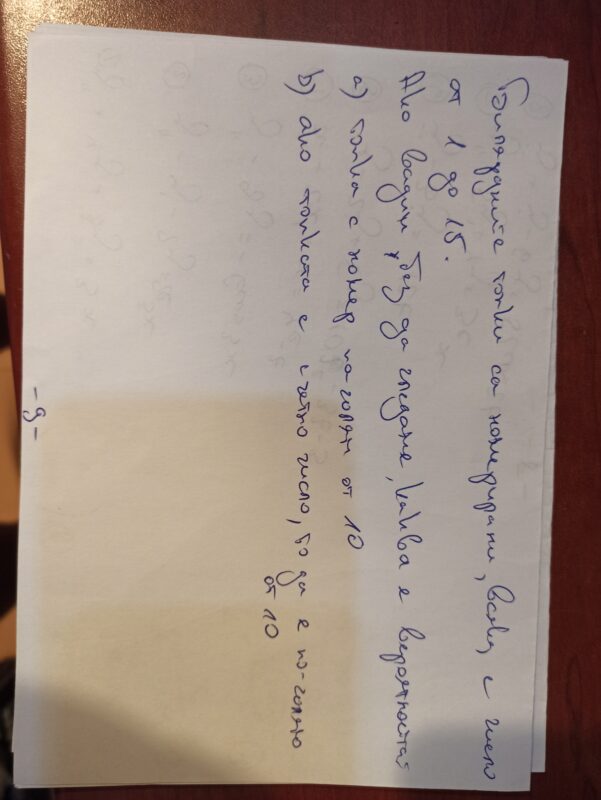 Билярдните топки са номерирани, всяка с число
от 1 до 15.
Ако вадим, без да гледаме, каква е вероятността
а) топка с номер по-голям от 10
b) ако топката е с четно число, то да е по-голямо
от 10
- 9 -